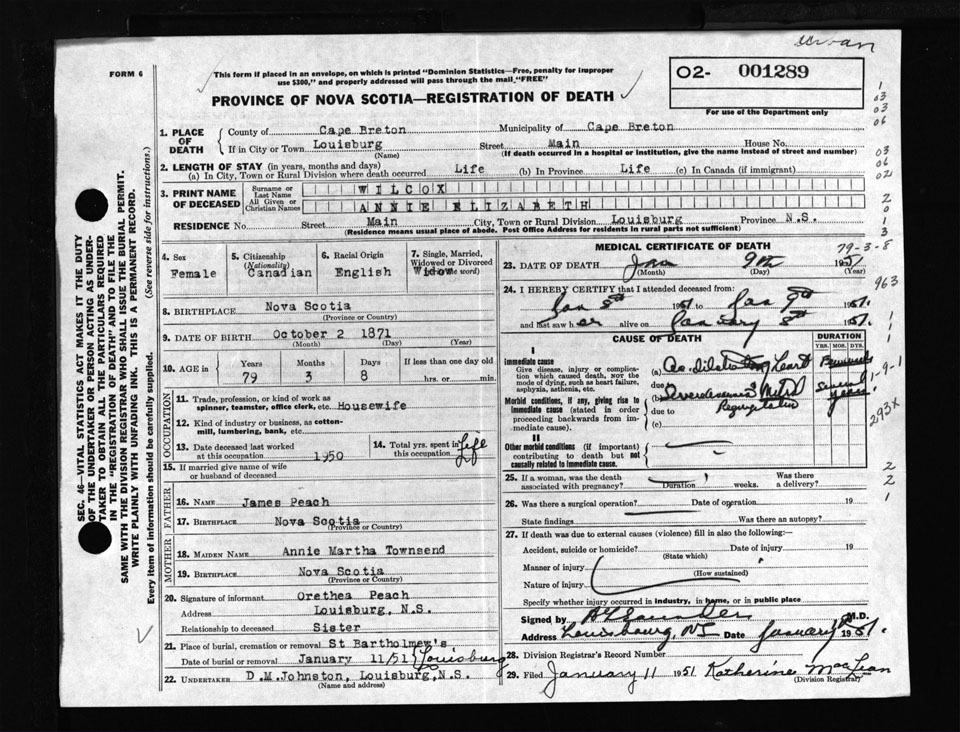 urban
FORM 6
This form if placed in an envelope, on which is printed "Dominion Statistics—Free, penalty for improper
use $300," and properly addressed will pass through the mail "FREE"
O2- 001289
For use of the Department only
PROVINCE OF NOVA SCOTIA—REGISTRATION OF DEATH
1. PLACE OF DEATH
County of Cape Breton Municipality of Cape Breton
If in City or Town Louisburg Street Main House No.
(Name) (If death occurred in a hospital or institution, give the name instead of street and number)
2. LENGTH OF STAY (in years, months and days)
(a) In City, Town or Rural Division where death occurred Life (b) In Province Life (c) In Canada (if immigrant)
3. PRINT NAME OF DECEASED
Surname or Last Name WILCOX
All Given or Christian Names ANNIE ELIZABETH
RESIDENCE No. Street Main City, Town or Rural Division Louisburg Province N.S.
(Residence means usual place of abode. Post Office Address for residents in rural parts not sufficient)
4. Sex Female
5. Citizenship (Nationality) Canadian
6. Racial Origin English
7. Single, Married, Widowed or Divorced (write the word) Widow
8. BIRTHPLACE Nova Scotia
(Province or Country)
9. DATE OF BIRTH October 2 1871
(Month) (Day) (Year)
10. AGE in Years Months Days If less than one day old
79 3 8 hrs. or min.
OCCUPATION
11. Trade, profession or kind of work as
spinner, teamster, office clerk, etc. Housewife
12. Kind of industry or business, as cotton-
mill, lumbering, bank, etc.
13. Date deceased last worked
at this occupation 1950
14. Total yrs. spent in
this occupation Life
15. If married give name of wife
or husband of deceased
FATHER
16. NAME James Peach
17. BIRTHPLACE Nova Scotia
(Province or Country)
MOTHER
18. MAIDEN NAME Annie Martha Townsend
19. BIRTHPLACE Nova Scotia
(Province or Country)
20. Signature of informant Orethea Peach
Address Louisburg, N.S.
Relationship to deceased Sister
21. Place of burial, cremation or removal St Bartholmew's
Date of burial or removal January 11/51 Louisburg
22. UNDERTAKER D.M.Johnston, Louisburg,N.S.
(Name and address)
MEDICAL CERTIFICATE OF DEATH
79-3-8
23. DATE OF DEATH Jan 9th 1951
(Month) (Day) (Year)
24. I HEREBY CERTIFY that I attended deceased from:
Jan 8th 1951 to Jan 9th 1951.
and last saw her alive on January 8th 1951.
CAUSE OF DEATH
DURATION
YRS. MOS. DYS.
I
Immediate cause
Give disease, injury or complication which caused death, NOT the mode of dying, such as heart failure, asphyxia, asthenia, etc.
(a) Dilatation Heart
due to
Morbid conditions, if any, giving rise to immediate cause (stated in order proceeding backwards from immediate cause).
(b) Mitral Several years
due to Regurgitation
(c)
II
Other morbid conditions (if important) contributing to death but not causally related to immediate cause.
25. If a woman, was the death
associated with pregnancy? Duration weeks. Was there a delivery?
26. Was there a surgical operation? Date of operation 19
State findings Was there an autopsy?
27. If death was due to external causes (violence) fill in also the following:—
Accident, suicide or homicide? Date of injury 19
(State which)
Manner of injury
(How sustained)
Nature of injury
Specify whether injury occurred in industry, in home, or in public place
Signed by M.D.
Address Louisbourg, NS Date January 1951.
28. Division Registrar's Record Number
29. Filed January 11 1951 Katherine MacLean
(Division Registrar)
SEC. 46—VITAL STATISTICS ACT MAKES IT THE DUTY
OF THE UNDERTAKER OR PERSON ACTING AS UNDER-
TAKER TO OBTAIN ALL THE PARTICULARS REQUIRED
IN THE "REGISTRATION OF DEATH" AND TO FILE THE
SAME WITH THE DIVISION REGISTRAR WHO SHALL ISSUE THE BURIAL PERMIT.
WRITE PLAINLY WITH UNFADING INK. THIS IS A PERMANENT RECORD.
Every item of information should be carefully supplied. (See reverse side for instructions.)
1
03
03
06
03
06
02
2
0
1
3
963
1
1
1
1-9-1
293X
2
2
1